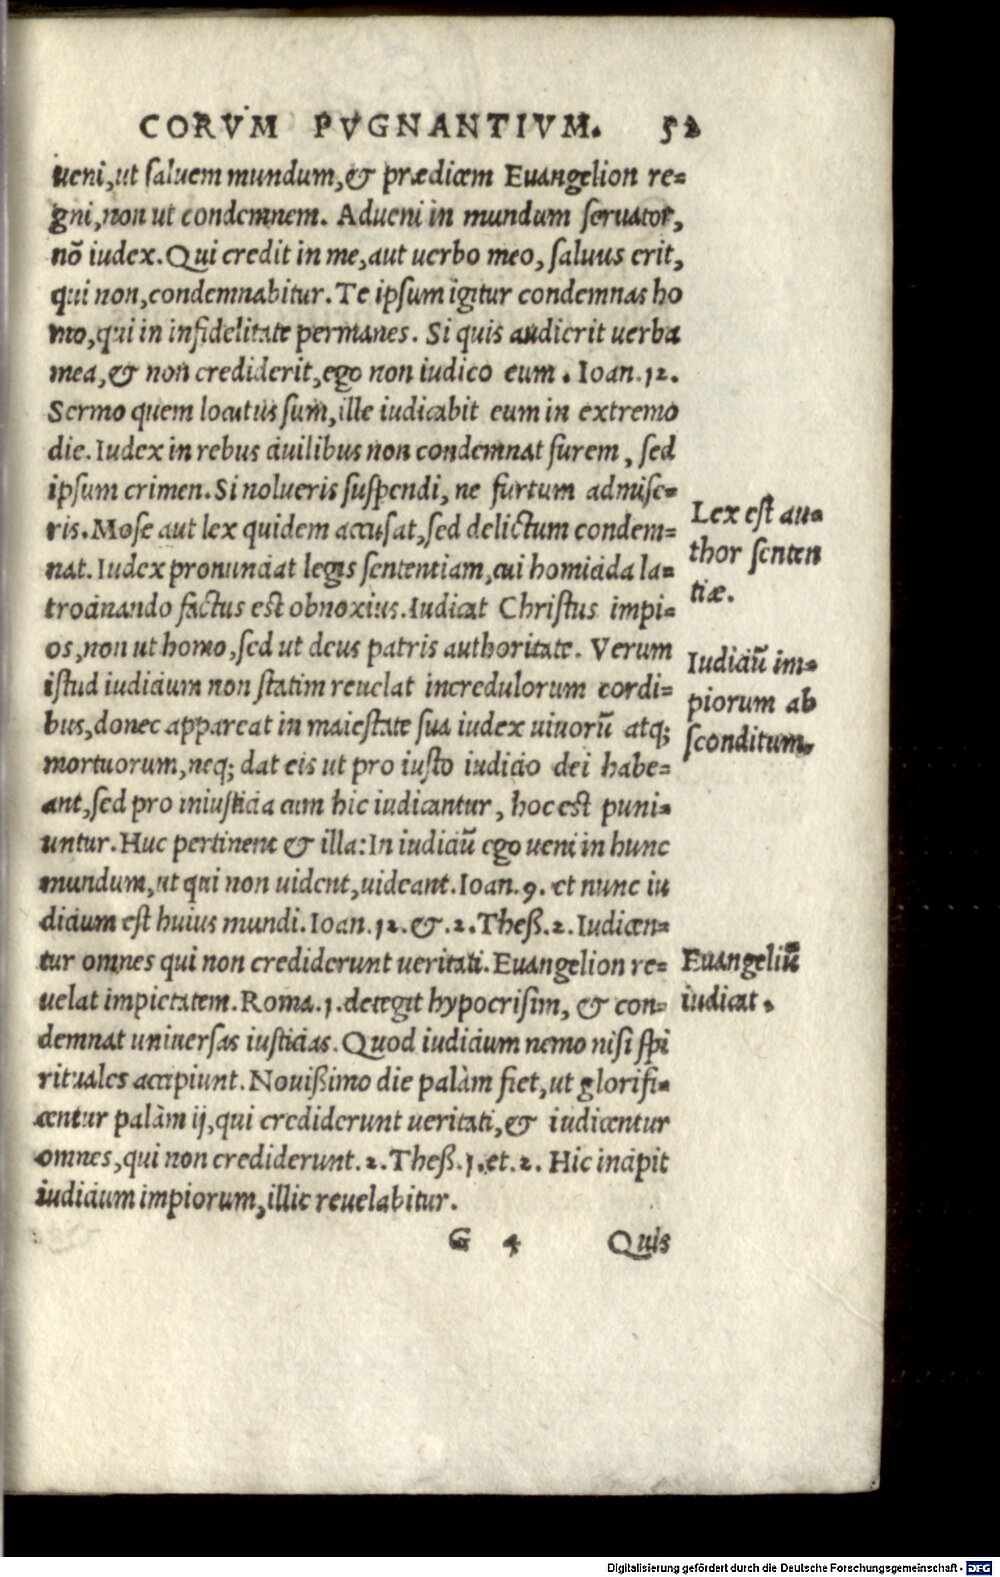 CORVM PVGNANTIVM. 52
ueni, ut saluem mundum, & prædicem Euangelion re=
gni, non ut condemnem. Adueni in mundum seruator,
nõ iudex. Qui credit in me, aut uerbo meo, saluus erit,
qui non, condemnabitur. Te ipsum igitur condemnas ho
mo, qui in infidelitate permanes. Si quis audierit uerba
mea, & non crediderit, ego non iudico eum. Ioan. 12.
Sermo quem locutus sum, ille iudicabit eum in extremo
die. Iudex in rebus ciuilibus non condemnat furem, sed
ipsum crimen. Si nolueris suspendi, ne furtum admise=
ris. Mose aut lex quidem accusat, sed delictum condem=
nat. Iudex pronunciat legis sententiam, cui homicida la=
trocinando factus est obnoxius. Iudicat Christus impi=
os, non ut homo, sed ut deus patris authoritate. Verum
istud iudicium non statim reuelat incredulorum cordi=
bus, donec appareat in maiestate sua iudex uiuorũ atq;
mortuorum, neq; dat eis ut pro iusto iudicio dei habe=
ant, sed pro iniusticia cum hic iudicantur, hoc est puni=
untur. Huc pertinent & illa: In iudiciũ ego ueni in hunc
mundum, ut qui non uident, uideant. Ioan. 9. et nunc iu
dicium est huius mundi. Ioan. 12. &. 2. Theß. 2. Iudicen=
tur omnes qui non crediderunt ueritati. Euangelion re=
uelat impietatem. Roma. 1. detegit hypocrisim, & con=
demnat uniuersas iusticias. Quod iudicium nemo nisi spi
rituales accipiunt. Nouißimo die palàm fiet, ut glorifi=
centur palàm ij, qui crediderunt ueritati, & iudicentur
omnes, qui non crediderunt. 2. Theß. 1. et. 2. Hic incipit
iudicium impiorum, illic reuelabitur.
G 4 Quis
Lex est au=
thor senten
tiæ.
Iudiciũ im=
piorum ab
sconditum.
Euangeliũ
iudicat.
Digitalisierung gefördert durch die Deutsche Forschungsgemeinschaft - DFG